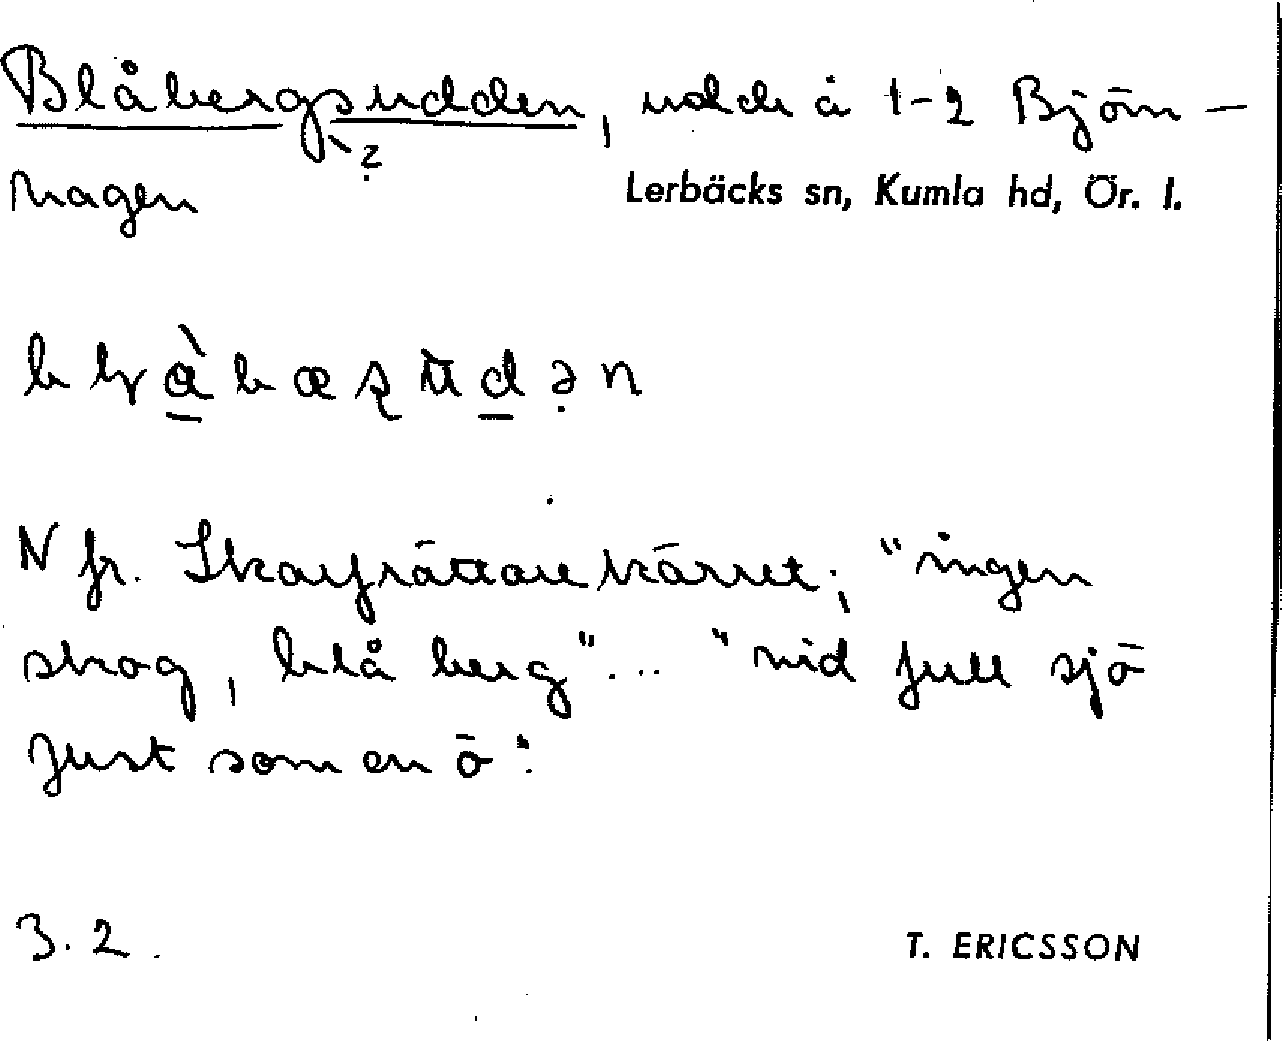 Blåbergsudden, udde å 1-2 Björn-
?
hagen
Lerbäcks sn, Kumla hd, Ör. l.
N fr. Skarfrättarekärret; "ingen
skog, blå berg"... "vid full sjö
just som en ö".
3.2.
T. ERICSSON